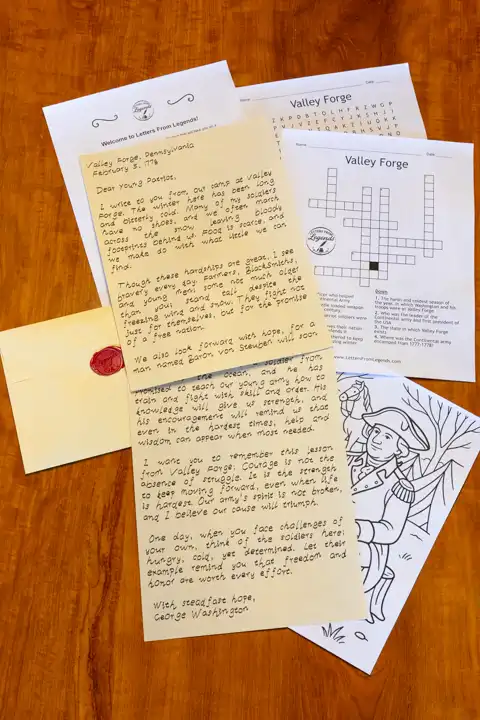 Welcome to Letters From Legends!
Name
Date
Valley Forge
Name
Date
Valley Forge
LETTERS FROM
Legends
Down
1. The harsh and coldest season of
the year, in which Washington and his
troops were in Valley Forge
2. Who was the leader of the
Continental army and first president of
the USA
3. The state in which Valley Forge
exists
4. Where was the Continental army
encamped from 1777-1778?
.LettersFromLegends.com
Valley Forge, Pennsylvania
February 5, 1778
Dear Young Patriot,
I write to you from our camp at Valley
Forge. The winter here has been long
and bitterly cold. Many of my soldiers
have no shoes, and we often march
across the snow, leaving bloody
footprints behind us. Food is scarce, and
we make do with what little we can
find.
Though these hardships are great, I see
bravery every day. Farmers, Blacksmiths,
and young men, some not much older
than you, stand tall despite the
freezing wind and snow. They fight not
just for themselves, but for the promise
of a free nation.
We also look forward with hope, for a
man named Baron von Steuben will soon
the ocean, and he has
promised to teach our young army how to
train and fight with skill and order. His
knowledge will give us strength, and
his encouragement will remind us that
even in the hardest times, help and
wisdom can appear when most needed.
I want you to remember this lesson
from Valley Forge: Courage is not the
absence of struggle. It is the strength
to keep moving forward, even when life
is hardest. Our army's spirit is not broken,
and I believe our cause will triumph.
One day, when you face challenges of
your own, think of the soldiers here:
hungry, cold, yet determined. Let their
example remind you that freedom and
honor are worth every effort.
With steadfast hope,
George Washington